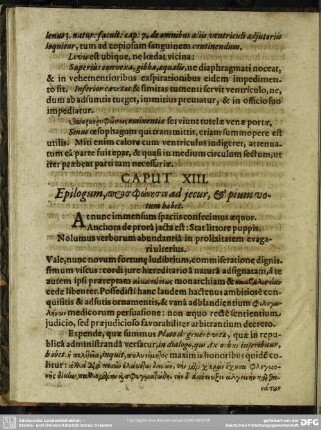 lenus 3. natur. facult: cap: 7. de omnibus aliis ventriculi adjutoriis
loquitur, tum ad copiosum sanguinem continendum.
Levis est ubique, ne lœdat vicina:
Superius convexa, gibba, æqualis, ne diaphragmati noceat,
& in vehementioribus exspirationibus eidem impedimen-
to sit. Inferior cavitas & simitas tumenti servit ventriculo, ne,
dum ab adsumtis turget, immitius prematur, & in officio suo
impediatur.
eminentiæ serviunt tutelæ venæ portæ,
Sinus œsophagum qui transmittit, etiam summopere est
utilis. Miti enim calore cum ventriculus indigeret, attenua-
tum eâ parte fuit epar, & quasi in medium circulum sectum, ut
iter præbeat parti tam necessariæ.
CAPUT XIII.
Epilogum, ad jecur, & pium vo-
tum habet.
At nunc immensum spaciis confecimus æquor.
Anchora de prorâ jacta est: Stat littore puppis.
Nolumus verborum abundantiâ in prolixitatem evaga-
ri ulterius.
Vale, nunc novum fortunæ ludibrium, commiseratione dignis-
simum viscus: cordi jure hæreditario â naturâ adsignatam, â te
autem ipsis præreptam monarchiam &
cede libenter. Possedisti hanc laudem hactenus ambitione con-
quisitis & adsutis ornamentis, & vanâ adblandientium
medicorum persuasione: non æquo rectè sentientium
judicio, sed præjudicioso favorabiliter arbitrantium decreto.
Expende, quæ summus Plato de genere vestro, quæ in repub-
licâ administrandâ versatur, in dialogo, qui inscribitur,
habet. inquit, maximis honoribus quidē co-
litur: